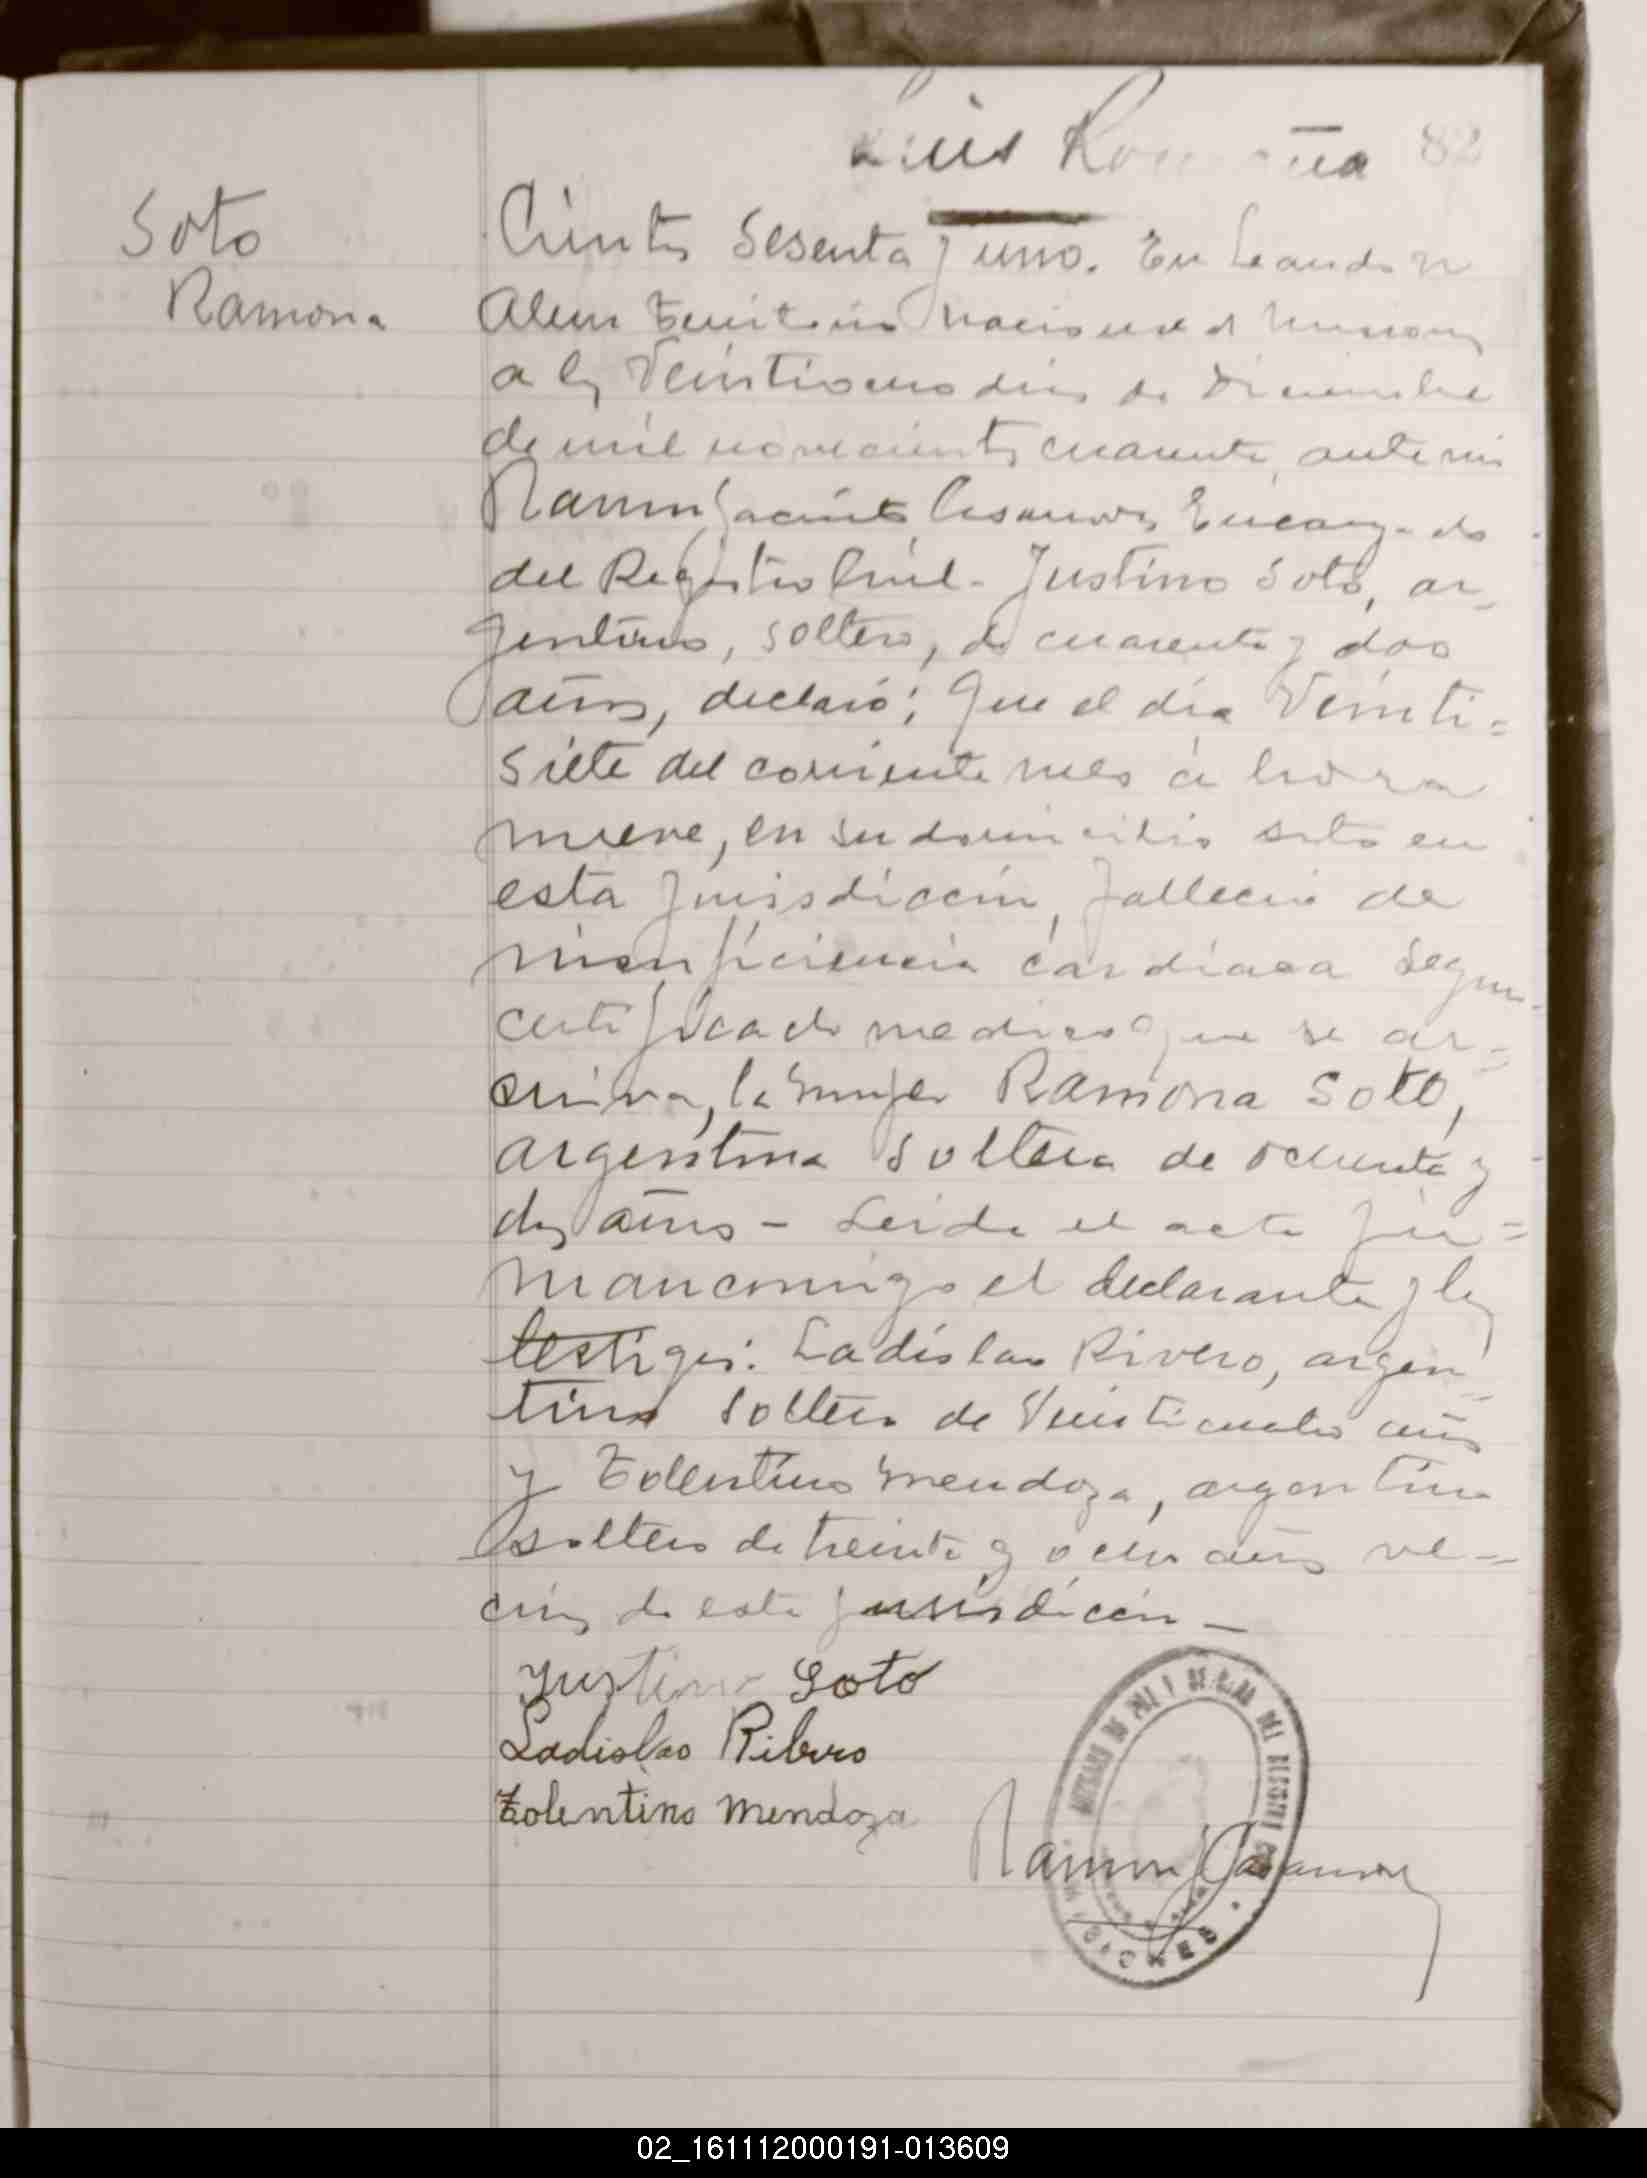 Luis
82
Soto
Ramona
Ciento sesenta y uno. En Leandro N
Alem Territorio Nacional de Misiones
a los Veintiocho dias de Diciembre
de mil novecientos cuarenta, ante mi
Ramon Jacinto Casanova, Encargado
del Registro Civil - Justino Soto, ar-
gentino, soltero, de cuarenta y dos
años, declaró; Que el día Veinti=
siete del corriente mes á hora
nueve, en su domicilio sito en
esta jurisdicción, falleció de
insuficiencia cardiaca segun
certificado medico que se ar=
chiva, la mujer Ramona Soto,
argentina soltera de ochenta y
dos años - Leida el acta fir=
man conmigo el declarante y los
testigos: Ladislao Rivero, argen-
tino soltero de Veinticuatro años
y Tolentino Mendoza, argentino
soltero de treinta y ocho años ve=
cinos de esta jurisdicción -
Justino Soto
Ladislao Ribero
Tolentino Mendoza
Ramon J Casanova
JUZGADO DE PAZ Y DEL REGISTRO CIVIL
MISIONES
02_161112000191-013609